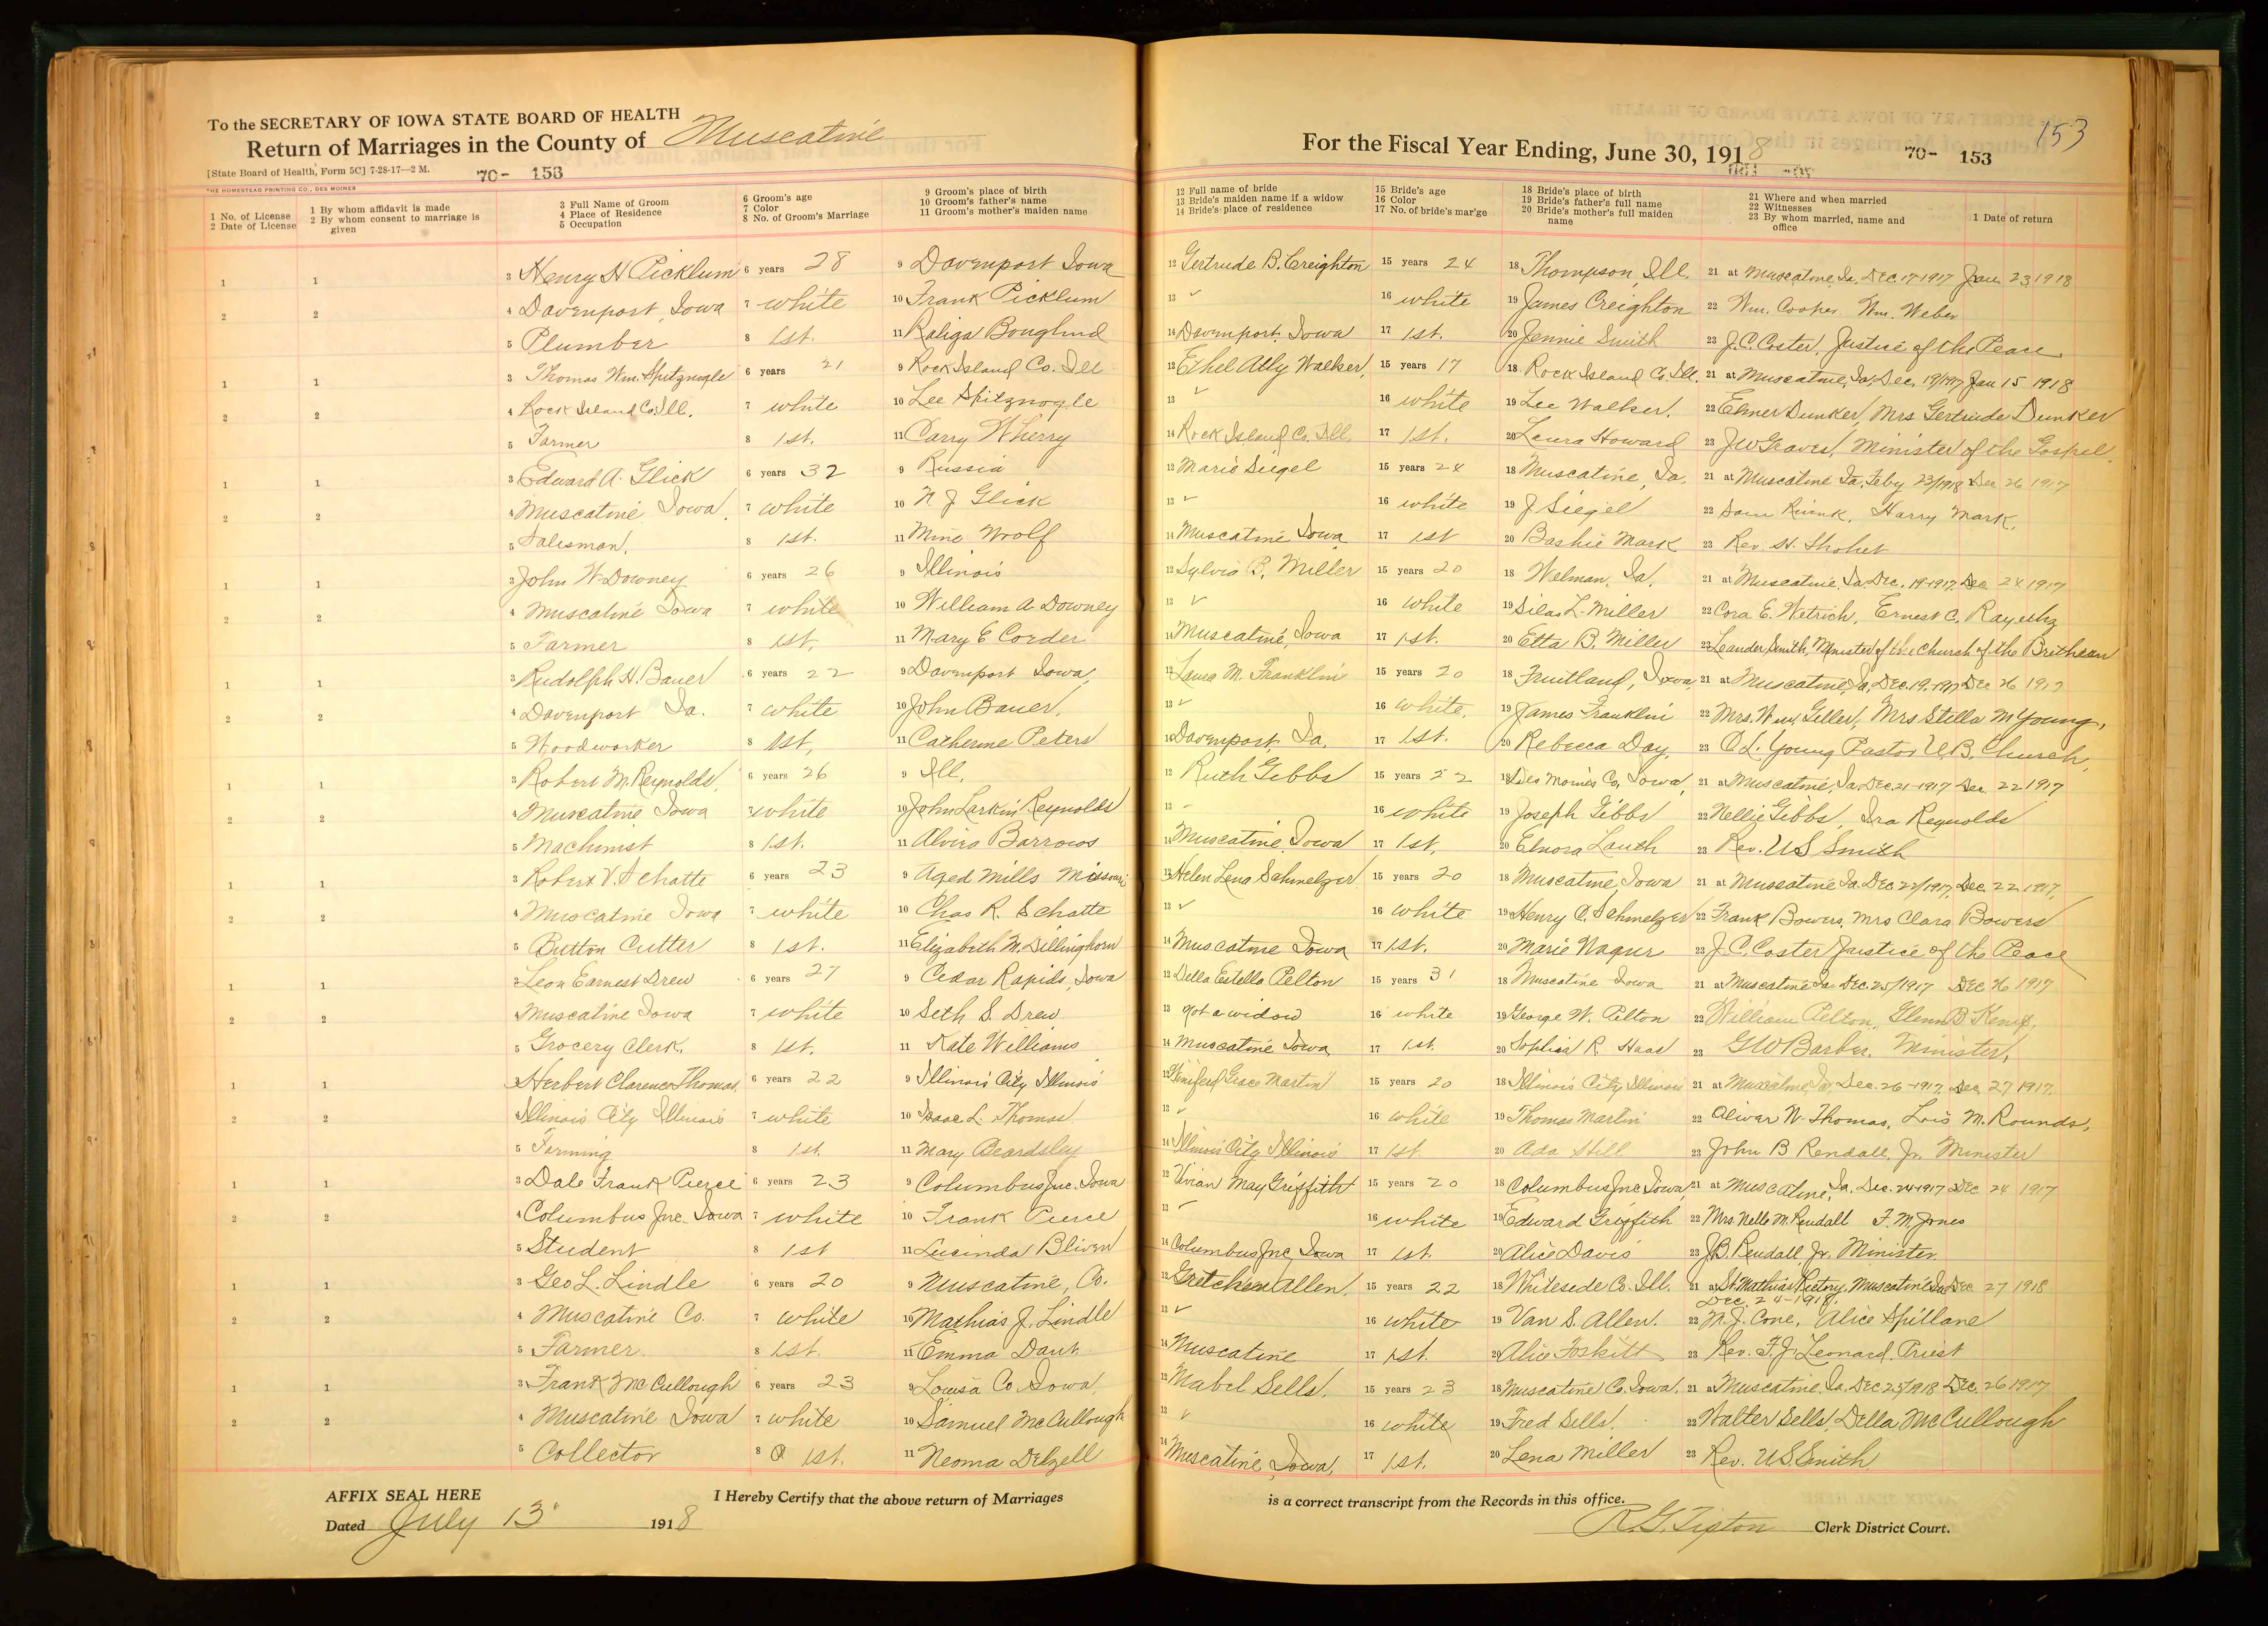 To the SECRETARY OF IOWA STATE BOARD OF HEALTH
Return of Marriages in the County of Muscatine
[State Board of Health, Form 5C] 7-28-17—2 M.
70- 153
THE HOMESTEAD PRINTING CO., DES MOINES
For the Fiscal Year Ending, June 30, 1918
70- 153
153
1 No. of License
2 Date of License
1 By whom affidavit is made
2 By whom consent to marriage is given
3 Full Name of Groom
4 Place of Residence
5 Occupation
6 Groom's age
7 Color
8 No. of Groom's Marriage
9 Groom's place of birth
10 Groom's father's name
11 Groom's mother's maiden name
12 Full name of bride
13 Bride's maiden name if a widow
14 Bride's place of residence
15 Bride's age
16 Color
17 No. of bride's mar'ge
18 Bride's place of birth
19 Bride's father's full name
20 Bride's mother's full maiden name
21 Where and when married
22 Witnesses
23 By whom married, name and office
1 Date of return
1 1 3 Henry H Picklum 6 years 28 9 Davenport Iowa 12 Gertrude B. Creighton 15 years 24 18 Thompson, Ill. 21 at Muscatine, Ia. Dec 17-1917 Jan 23 1918
2 2 4 Davenport, Iowa 7 white 10 Frank Picklum 13 ✓ 16 white 19 James Creighton 22 Wm. Cooper Wm. Weber
5 Plumber 8 1st. 11 14 Davenport, Iowa 17 1st. 20 Jennie Smith 23 J.C. Coster, Justice of the Peace
1 1 3 Thomas Wm. Spitznogle 6 years 21 9 Rock Island Co. Ill 12 Ethel Ally Walker, 15 years 17 18 Rock Island Co. Ill. 21 at Muscatine, Ia. Dec. 19/1917 Jan 15 1918
2 2 4 Rock Island Co. Ill. 7 white 10 Lee Spitznogle 13 ✓ 16 white 19 Lee Walker. 22 Elmer Dunker, Mrs Gertrude Dunker
5 Farmer 8 1st. 11 Carry Wherry 14 Rock Island Co. Ill. 17 1st. 20 Laura Howard 23 J W Graves, Minister of the Gospel
1 1 3 Edward A. Glick 6 years 32 9 Russia 12 Marie Siegel 15 years 24 18 Muscatine, Ia. 21 at Muscatine Ia. Feby 23/1918 Dec 26 1917
2 2 4 Muscatine Iowa. 7 white 10 N. J Glick 13 ✓ 16 white 19 J Siegel 22 Harry Mark.
5 Salesman. 8 1st. 11 Mine Woolf 14 Muscatine Iowa 17 1st 20 Bashie Mark 23 Rev. H. Shohet
1 1 3 John W. Downey 6 years 26 9 Illinois 12 Sylvia B. Miller 15 years 20 18 Welman, Ia. 21 at Muscatine Ia. Dec. 19-1917 Dec 24 1917
2 2 4 Muscatine Iowa 7 white 10 William A Downey 13 ✓ 16 white 19 Silas L. Miller 22 Cora E. Wetrich, Ernest C.
5 Farmer 8 1st, 11 Mary E Corder 14 Muscatine, Iowa 17 1st. 20 Etta B. Miller 23 Leander Smith, Minister of the Church of the Brethean
1 1 3 Rudolph H. Bauer 6 years 22 9 Davenport Iowa, 12 Laura M. Franklin 15 years 20 18 Fruitland, Iowa, 21 at Muscatine, Ia. Dec. 19, 1917 Dec 26 1917
2 2 4 Davenport Ia. 7 white 10 John Bauer. 13 ✓ 16 white. 19 James Franklin 22 Mrs. Wm Geller, Mrs Stella M Young,
5 Woodworker 8 1st, 11 Catherine Peters 14 Davenport, Ia. 17 1st. 20 Rebecca Day. 23 O L. Young Pastor U.B. Church,
1 1 3 Robert M. Reynolds, 6 years 26 9 Ill. 12 Ruth Gibbs 15 years 22 18 Des Moines Co, Iowa, 21 at Muscatine, Ia. Dec 21-1917 Dec 22 1917
2 2 4 Muscatine Iowa 7 white 10 John Larkin Reynolds 13 - 16 white 19 Joseph Gibbs 22 Nellie Gibbs, Ira Reynolds
5 Machinist 8 1st. 11 Alvira Barrows 14 Muscatine, Iowa 17 1st, 20 Elnora Lauth 23 Rev. U S Smith
1 1 3 Robert V. Schatte 6 years 23 9 Aged Mills Missouri 12 Helen Lena Schmelzer 15 years 20 18 Muscatine, Iowa 21 at Muscatine Ia. Dec 22/1917. Dec. 22 1917.
2 2 4 Muscatine Iowa 7 white 10 Chas R. Schatte 13 ✓ 16 white 19 Henry C. Schmelzer 22 Frank Bowers, Mrs Clara Bowers
5 Button Cutter 8 1st. 11 Elizabeth N. Dillinghorn 14 Muscatine Iowa 17 1st. 20 Marie Nagur 23 J. C. Coster Justice of the Peace
1 1 3 Leon Earnest Drew 6 years 27 9 Cedar Rapids, Iowa 12 Della Estella Pelton 15 years 31 18 Muscatine Iowa 21 at Muscatine Ia Dec. 25/1917 Dec 26 1917
2 2 4 Muscatine Iowa 7 white 10 Seth S Drew 13 not a widow 16 white 19 George W. Pelton 22 William Pelton, Glenn B Kemp,
5 Grocery Clerk. 8 1st. 11 Kate Williams 14 Muscatine Iowa 17 1st. 20 Sophia R. Haas 23 G W Barber. Minister,
1 1 3 Herbert Clarence Thomas. 6 years 22 9 Illinois City Illinois 12 Winifred Grace Martin 15 years 20 18 Illinois City Illinois 21 at Muscatine, Ia. Dec. 26-1917. Dec 27 1917.
2 2 4 Illinois City Illinois 7 white 10 Isaac L. Thomas 13 ✓ 16 white 19 Thomas Martin 22 Oliver W. Thomas, Lois M. Rounds,
5 Farming 8 1st. 11 Mary Beardsley 14 Illinois City Illinois 17 1st. 20 Ada Still 23 John B Rendall, Jr. Minister
1 1 3 Dale Frank Pierce 6 years 23 9 Columbus Jnc. Iowa 12 Vivian May Griffith 15 years 20 18 Columbus Jnc Iowa 21 at Muscatine, Ia. Dec. 24-1917 Dec 24 1917
2 2 4 Columbus Jnc. Iowa 7 white 10 Frank Pierce 13 - 16 white 19 Edward Griffith 22 Mrs. Nelle M. Rendall F. M. Jones
5 Student 8 1st 11 Lucinda Bliven 14 Columbus Jnc Iowa 17 1st. 20 Alice Davis 23 J.B. Rendall, Jr. Minister
1 1 3 Geo L. Lindle 6 years 20 9 Muscatine, Co. 12 Gretchen Allen. 15 years 22 18 Whiteside Co. Ill. 21 at St. Mathias Rectory, Muscatine Ia Dec 27 1918
Dec. 24-1918.
2 2 4 Muscatine Co. 7 white 10 Mathias J. Lindle 13 ✓ 16 white 19 Van S. Allen. 22 N. J. Cone, Alice Spillane
5 Farmer. 8 1st. 11 Emma Daut 14 Muscatine 17 1st. 20 Alice Foskitt 23 Rev. F. J. Leonard. Priest
1 1 3 Frank McCullough 6 years 23 9 Louisa Co. Iowa, 12 Mabel Sells. 15 years 23 18 Muscatine Co. Iowa. 21 at Muscatine, Ia. Dec 25/1918 Dec. 26 1917
2 2 4 Muscatine Iowa 7 white 10 Samuel McCullough 13 ✓ 16 white 19 Fred Sells. 22 Walter Sells, Della McCullough
5 Collector 8 1st. 11 Neoma Delzell 14 Muscatine, Iowa, 17 1st. 20 Lena Miller 23 Rev. U S Smith
AFFIX SEAL HERE
I Hereby Certify that the above return of Marriages is a correct transcript from the Records in this office.
Dated July 13" 1918
R. G. Tipton Clerk District Court.